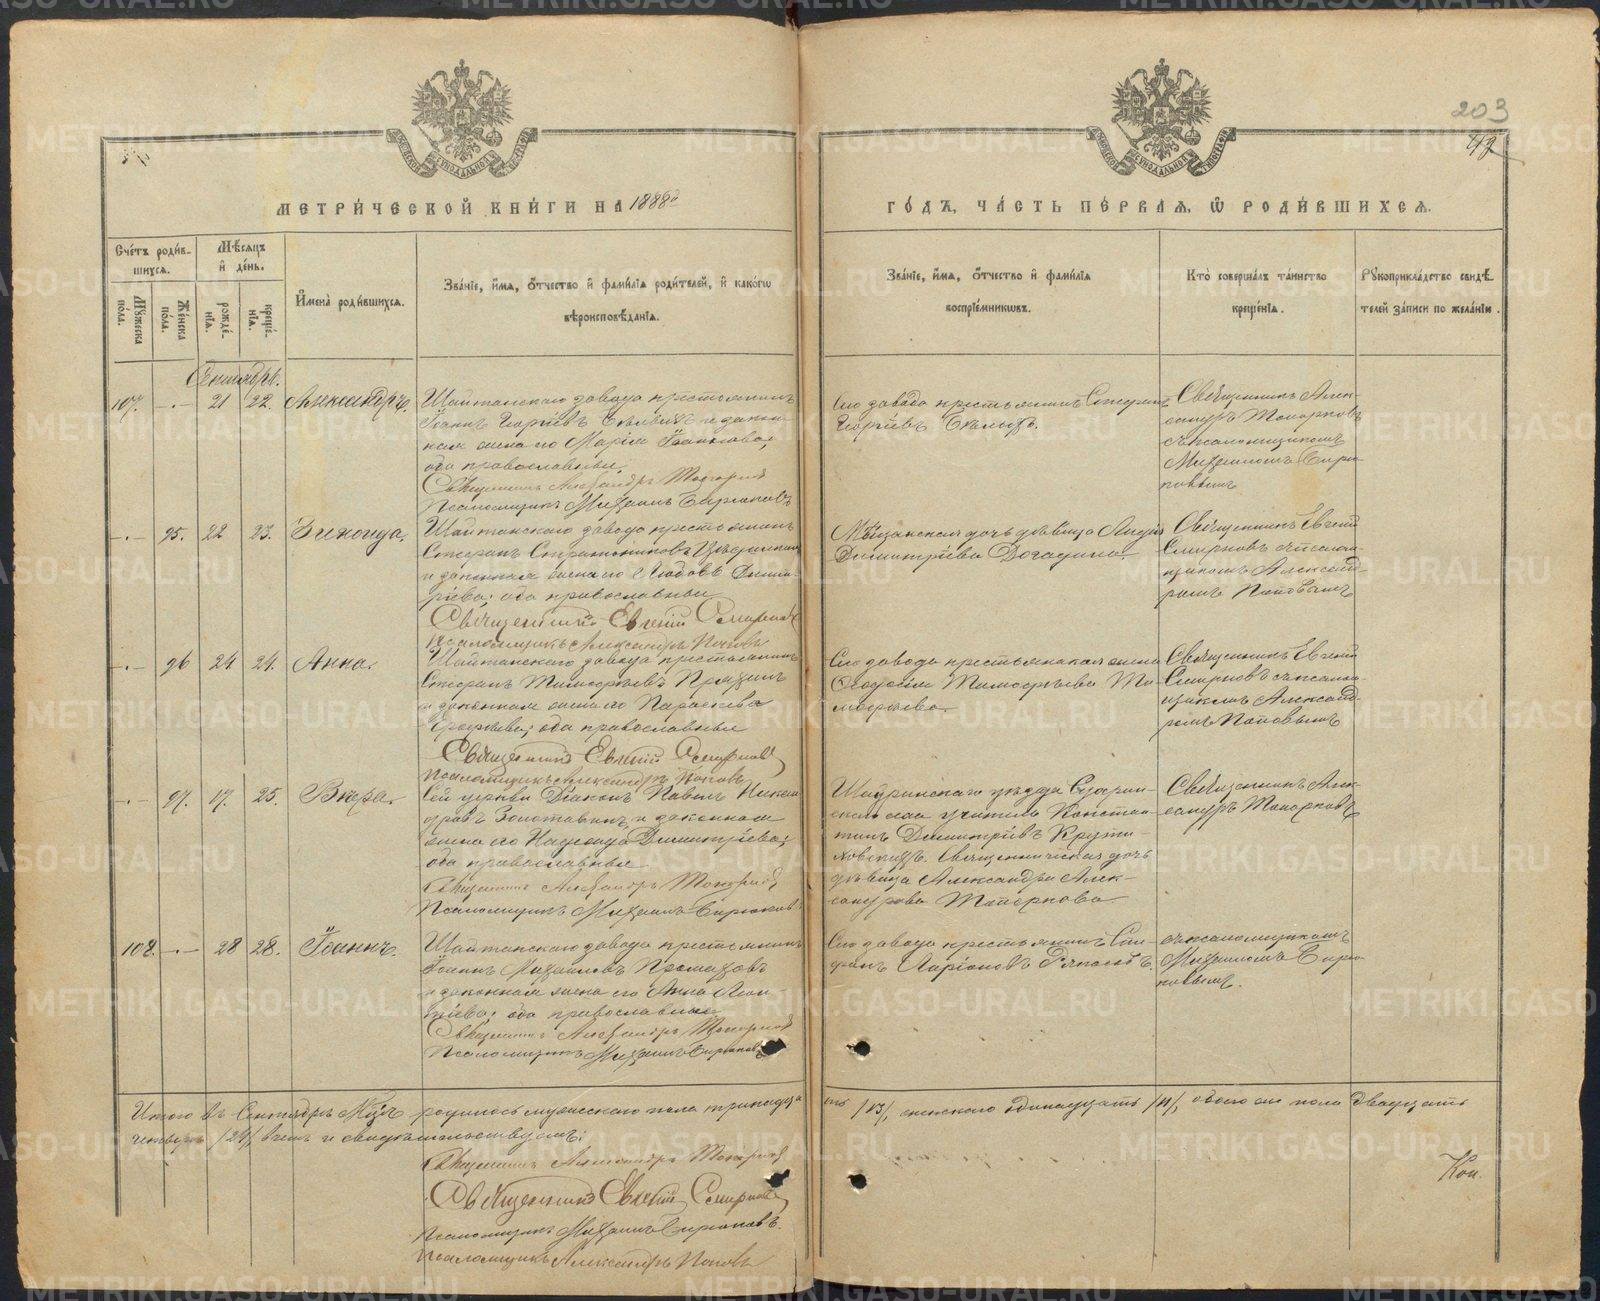 203
43
МЕТРИ́ЧЕСКОЙ КНИ́ГИ НА 1888й
ГО́ДЪ, ЧА́СТЬ ПЕ́РВАЯ, Ѡ РОДИ́ВШИХСЯ.
Сче́тъ роди́в-
шихся.
Мꙋжеска по́ла.
Же́нска по́ла.
Мѣ́сяцъ
и де́нь.
рожде́-
нїя.
креще́-
нїя.
Имена̀ роди́вшихся.
Зва́нїе, и́мя, о́тчество и фами́лїя роди́телей, и како́гѡ
вѣроисповѣ́данїя.
Зва́нїе, и́мя, о́тчество и фами́лїя
воспрїе́мникѡвъ.
Кто̀ соверша́лъ та́инство
креще́нїя.
Рꙋкоприкла́дство свидѣ́-
телей за́писи по жела́нїю.
Сентябрь.
107. 21 22. Александръ.
Шайтанскаго завода крестьянинъ
Іоаннъ Георгіевъ и закон-
ная жена его Марія Іоаннова,
оба православные.
Священникъ Александръ Топорковъ
Псаломщикъ Михаилъ Бирюковъ
Сего завода крестьянинъ
Георгіевъ
Священникъ Алек-
сандръ Топорковъ
съ псаломщикомъ
Михаиломъ Бирю-
ковымъ
95. 22 23. Зинаида.
Шайтанскаго завода крестьянинъ
Стефанъ
и законная жена его Любовь Димит-
ріева; оба православные
Священникъ Евгеній Смирновъ
Псаломщикъ Александръ Поповъ
Мѣщанская дочь дѣвица Лидія
Димитріева Догадина
Священникъ Евгеній
Смирновъ съ псалом-
щикомъ Александ-
ромъ Поповымъ
96 24 24. Анна.
Шайтанскаго завода крестьянинъ
Стефанъ Тимофеевъ
и законная жена его Параскева
оба православные
Священникъ Евгеній Смирновъ
Псаломщикъ Александръ Поповъ
Сего завода крестьянская жена
Феодосія Тимофеева Ти-
мофеева
Священникъ Евгеній
Смирновъ съ псалом-
щикомъ Александ-
ромъ Поповымъ
97. 17. 25. Вѣра.
Сей церкви Діаконъ Павелъ
Золотавинъ и законная
жена его Надежда Димитріева;
оба православные
Священникъ Александръ Топорковъ
Псаломщикъ Михаилъ Бирюковъ
Шадринскаго уѣзда
села учитель Констан-
тинъ Димитріевъ Крути-
ховскихъ. Священническая дочь
дѣвица Александра Алек-
сандрова Топоркова
Священникъ Алек-
сандръ Топорковъ
108. 28 28. Іоаннъ.
Шайтанскаго завода крестьянинъ
Іоаннъ Михаиловъ
и законная жена его Анна Леон-
тіева; оба православные
Священникъ Александръ Топорковъ
Псаломщикъ Михаилъ Бирюковъ
Сего завода крестьянинъ
Ларіоновъ
съ псаломщикомъ
Михаиломъ Бирю-
ковымъ.
Итого въ Сентябрѣ Мцѣ родилось мужескаго пола тринадца
ть /13/, женскаго одинадцать /11/, обоего же пола двадцать
четверо /24/ въ чемъ и свидѣтельствуемъ:
Священникъ Александръ Топорковъ
Священникъ Евгеній Смирновъ
Псаломщикъ Михаилъ Бирюковъ.
Псаломщикъ Александръ Поповъ
METRIKI.GASO-URAL.RU